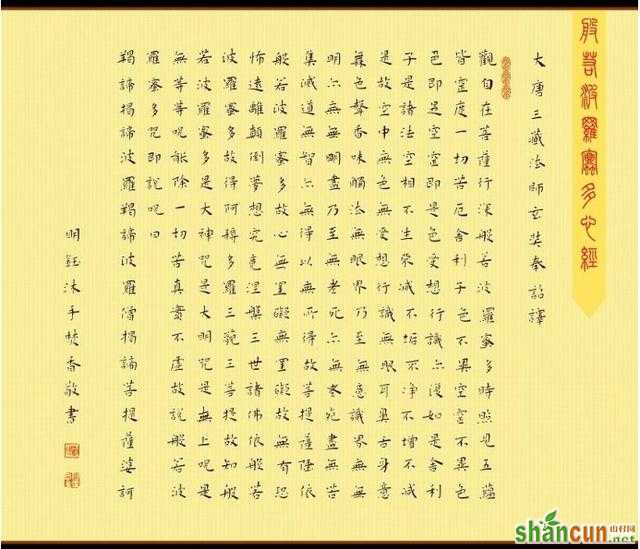 般若波羅蜜多心經
大唐三藏法師玄奘奉詔譯
觀自在菩薩行深般若波羅蜜多時照見五蘊
皆空度一切苦厄舍利子色不異空空不異色
色即是空空即是色受想行識亦復如是舍利
子是諸法空相不生不滅不垢不淨不增不減
是故空中無色無受想行識無眼耳鼻舌身意
無色聲香味觸法無眼界乃至無意識界無無
明亦無無明盡乃至無老死亦無老死盡無苦
集滅道無智亦無得以無所得故菩提薩埵依
般若波羅蜜多故心無罣礙無罣礙故無有恐
怖遠離顛倒夢想究竟涅槃三世諸佛依般若
波羅蜜多故得阿耨多羅三藐三菩提故知般
若波羅蜜多是大神咒是大明咒是無上咒是
無等等呪能除一切苦真實不虛故說般若波
羅蜜多呪即說呪曰
揭諦揭諦波羅揭諦波羅僧揭諦菩提薩婆訶
明鈺沐手焚香敬書
shancun
山村网
.net